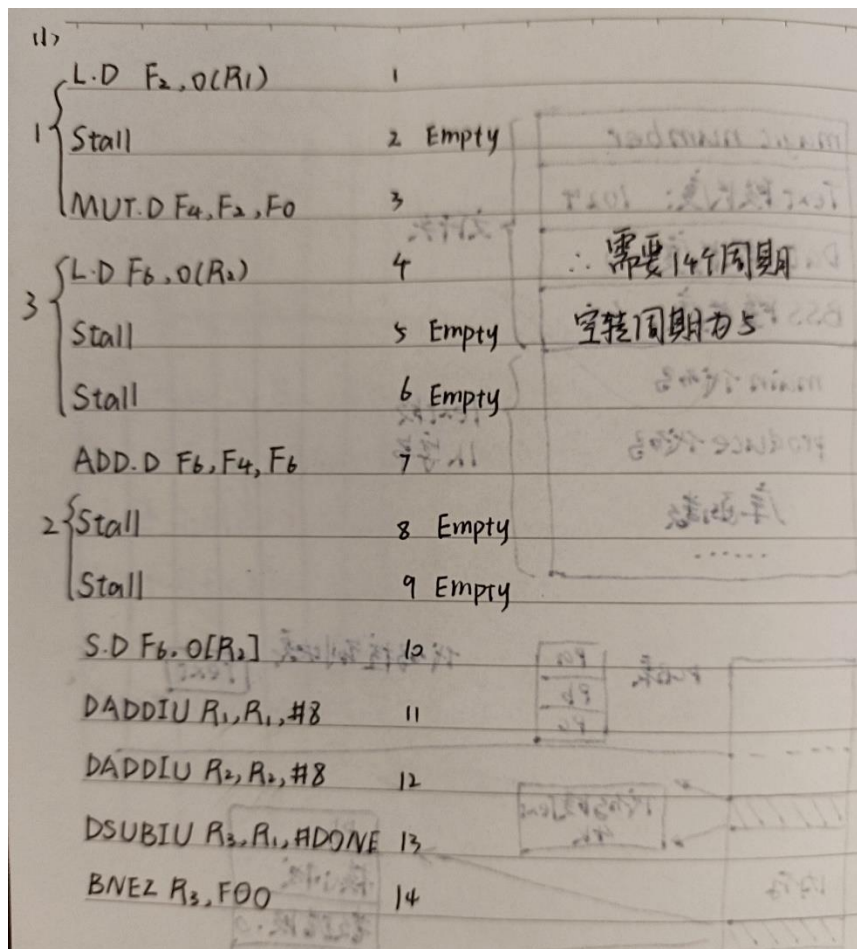 (1)
L.D F2, 0(R1) 1
1 Stall 2 Empty
MUT.D F4, F2, F0 3
L.D F6, 0(R2) 4 ∴ 需要14个周期
3 Stall 5 Empty 空转周期为5
Stall 6 Empty
ADD.D F6, F4, F6 7
2 Stall 8 Empty
Stall 9 Empty
S.D F6, 0[R2] 10
DADDIU R1, R1, #8 11
DADDIU R2, R2, #8 12
DSUBIU R3, R1, #DONE 13
BNEZ R3, FOO 14